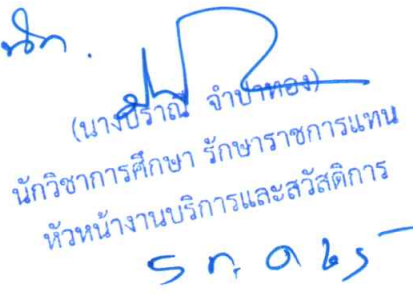 (นางปราณี จำปาทอง)
นักวิชาการศึกษา รักษาราชการแทน
หัวหน้างานบริการและสวัสดิการ